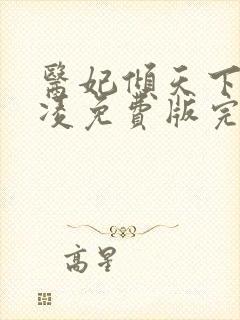 醫妃傾天下
凌免費版完
高星